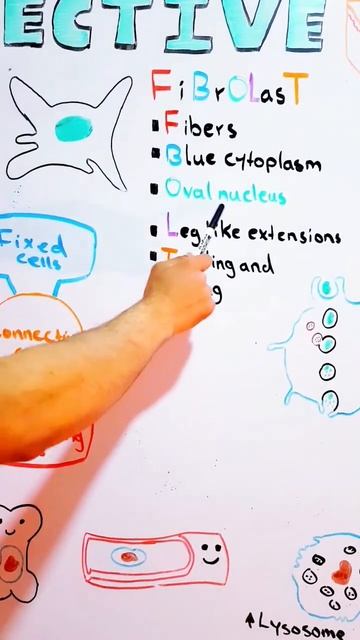 ECTIVE
FiBrOLasT
Fibers
Blue cytoplasm
Oval nucleus
Leg like extensions
and
Fixed
cells
↑Lysosome